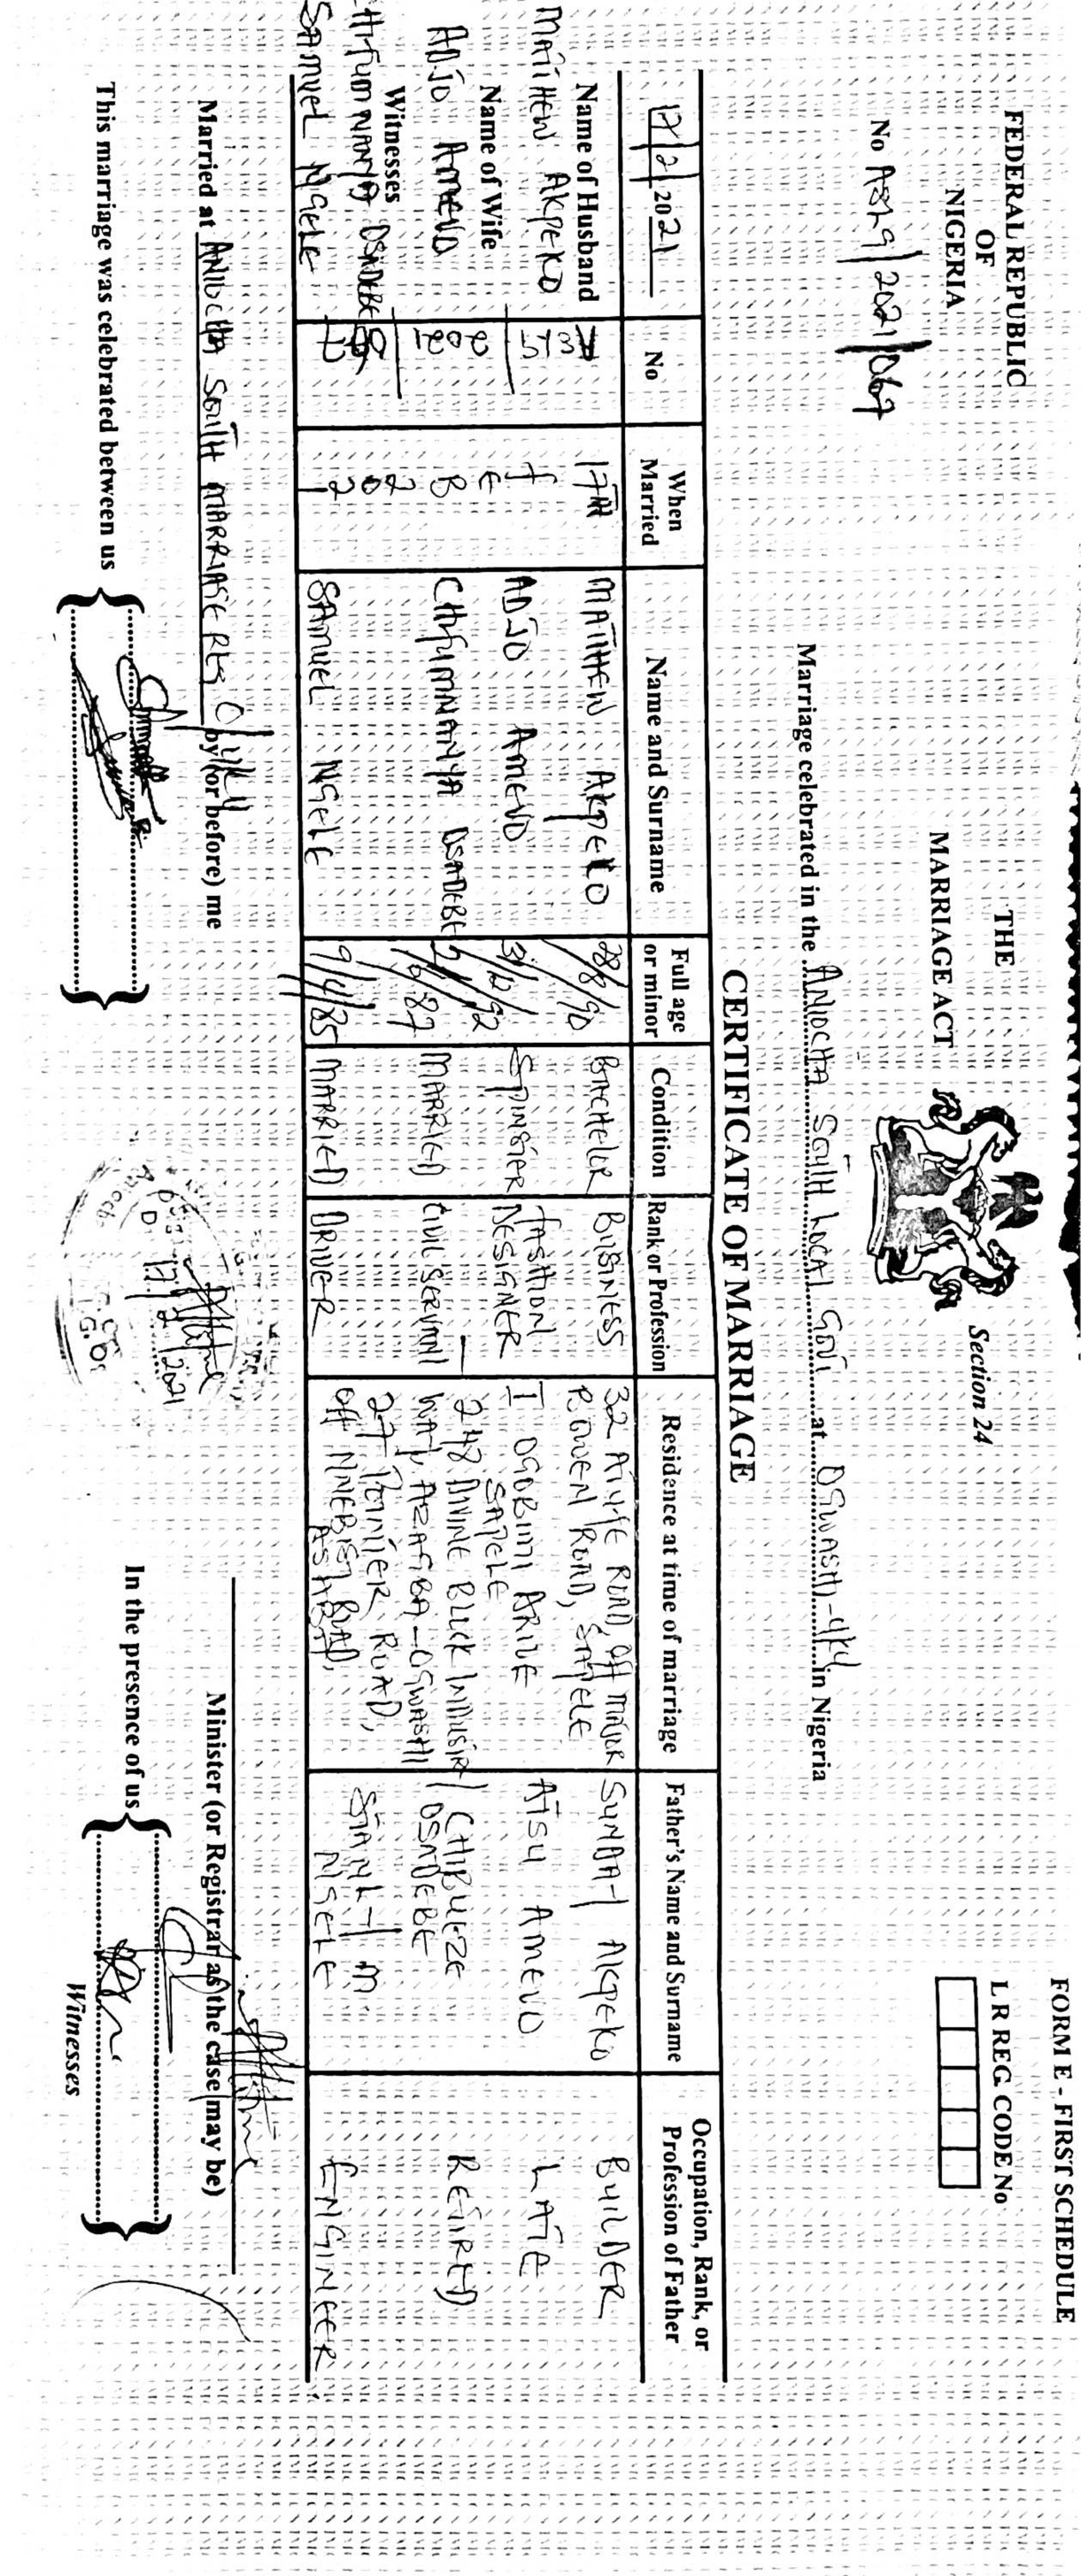 FORM E - FIRST SCHEDULE
FEDERAL REPUBLIC
OF
NIGERIA
THE
MARRIAGE ACT
Section 24
L R REG. CODE No
No ASLG/2021/067
Marriage celebrated in the ANIOCHA SOUTH LOCAL GOVT at OGWASHI-UKU in Nigeria
CERTIFICATE OF MARRIAGE
17/2/2021
No
When Married
Name and Surname
Full age or minor
Condition
Rank or Profession
Residence at time of marriage
Father's Name and Surname
Occupation, Rank, or Profession of Father
Name of Husband
MATTHEW AKPEKO
Name of Wife
ADJO AMEVO
Witnesses
OSADEBE
SAMUEL NGELE
2021
17TH
FEB
2021
MATTHEW AKPEKO
28/8/90
BACHELOR
BUSINESS
32 ROAD, OFF MAJOR
BOWEN ROAD, SAPELE
SUNDAY AKPEKO
BUILDER
ADJO AMEVO
SPINSTER
FASHION DESIGNER
1 OGORITI DRIVE
SAPELE
ATSU AMEVO
LATE
CHIFUMNANYA OSADEBE
MARRIED
CIVIL SERVANT
248 DIVINE BLOCK INDUSTRY
WAY, AZAGBA-OGWASHI
CHIBUEZE OSADEBE
RETIRED
SAMUEL NGELE
9/4/85
MARRIED
DRIVER
27 ROAD,
OFF NNEBISI ROAD,
ASABA
STANLEY M NGELE
ENGINEER
Married at ANIOCHA SOUTH MARRIAGE REG by (or before) me
Minister (or Registrar as the case may be)
This marriage was celebrated between us
In the presence of us
Witnesses
17/2/2021